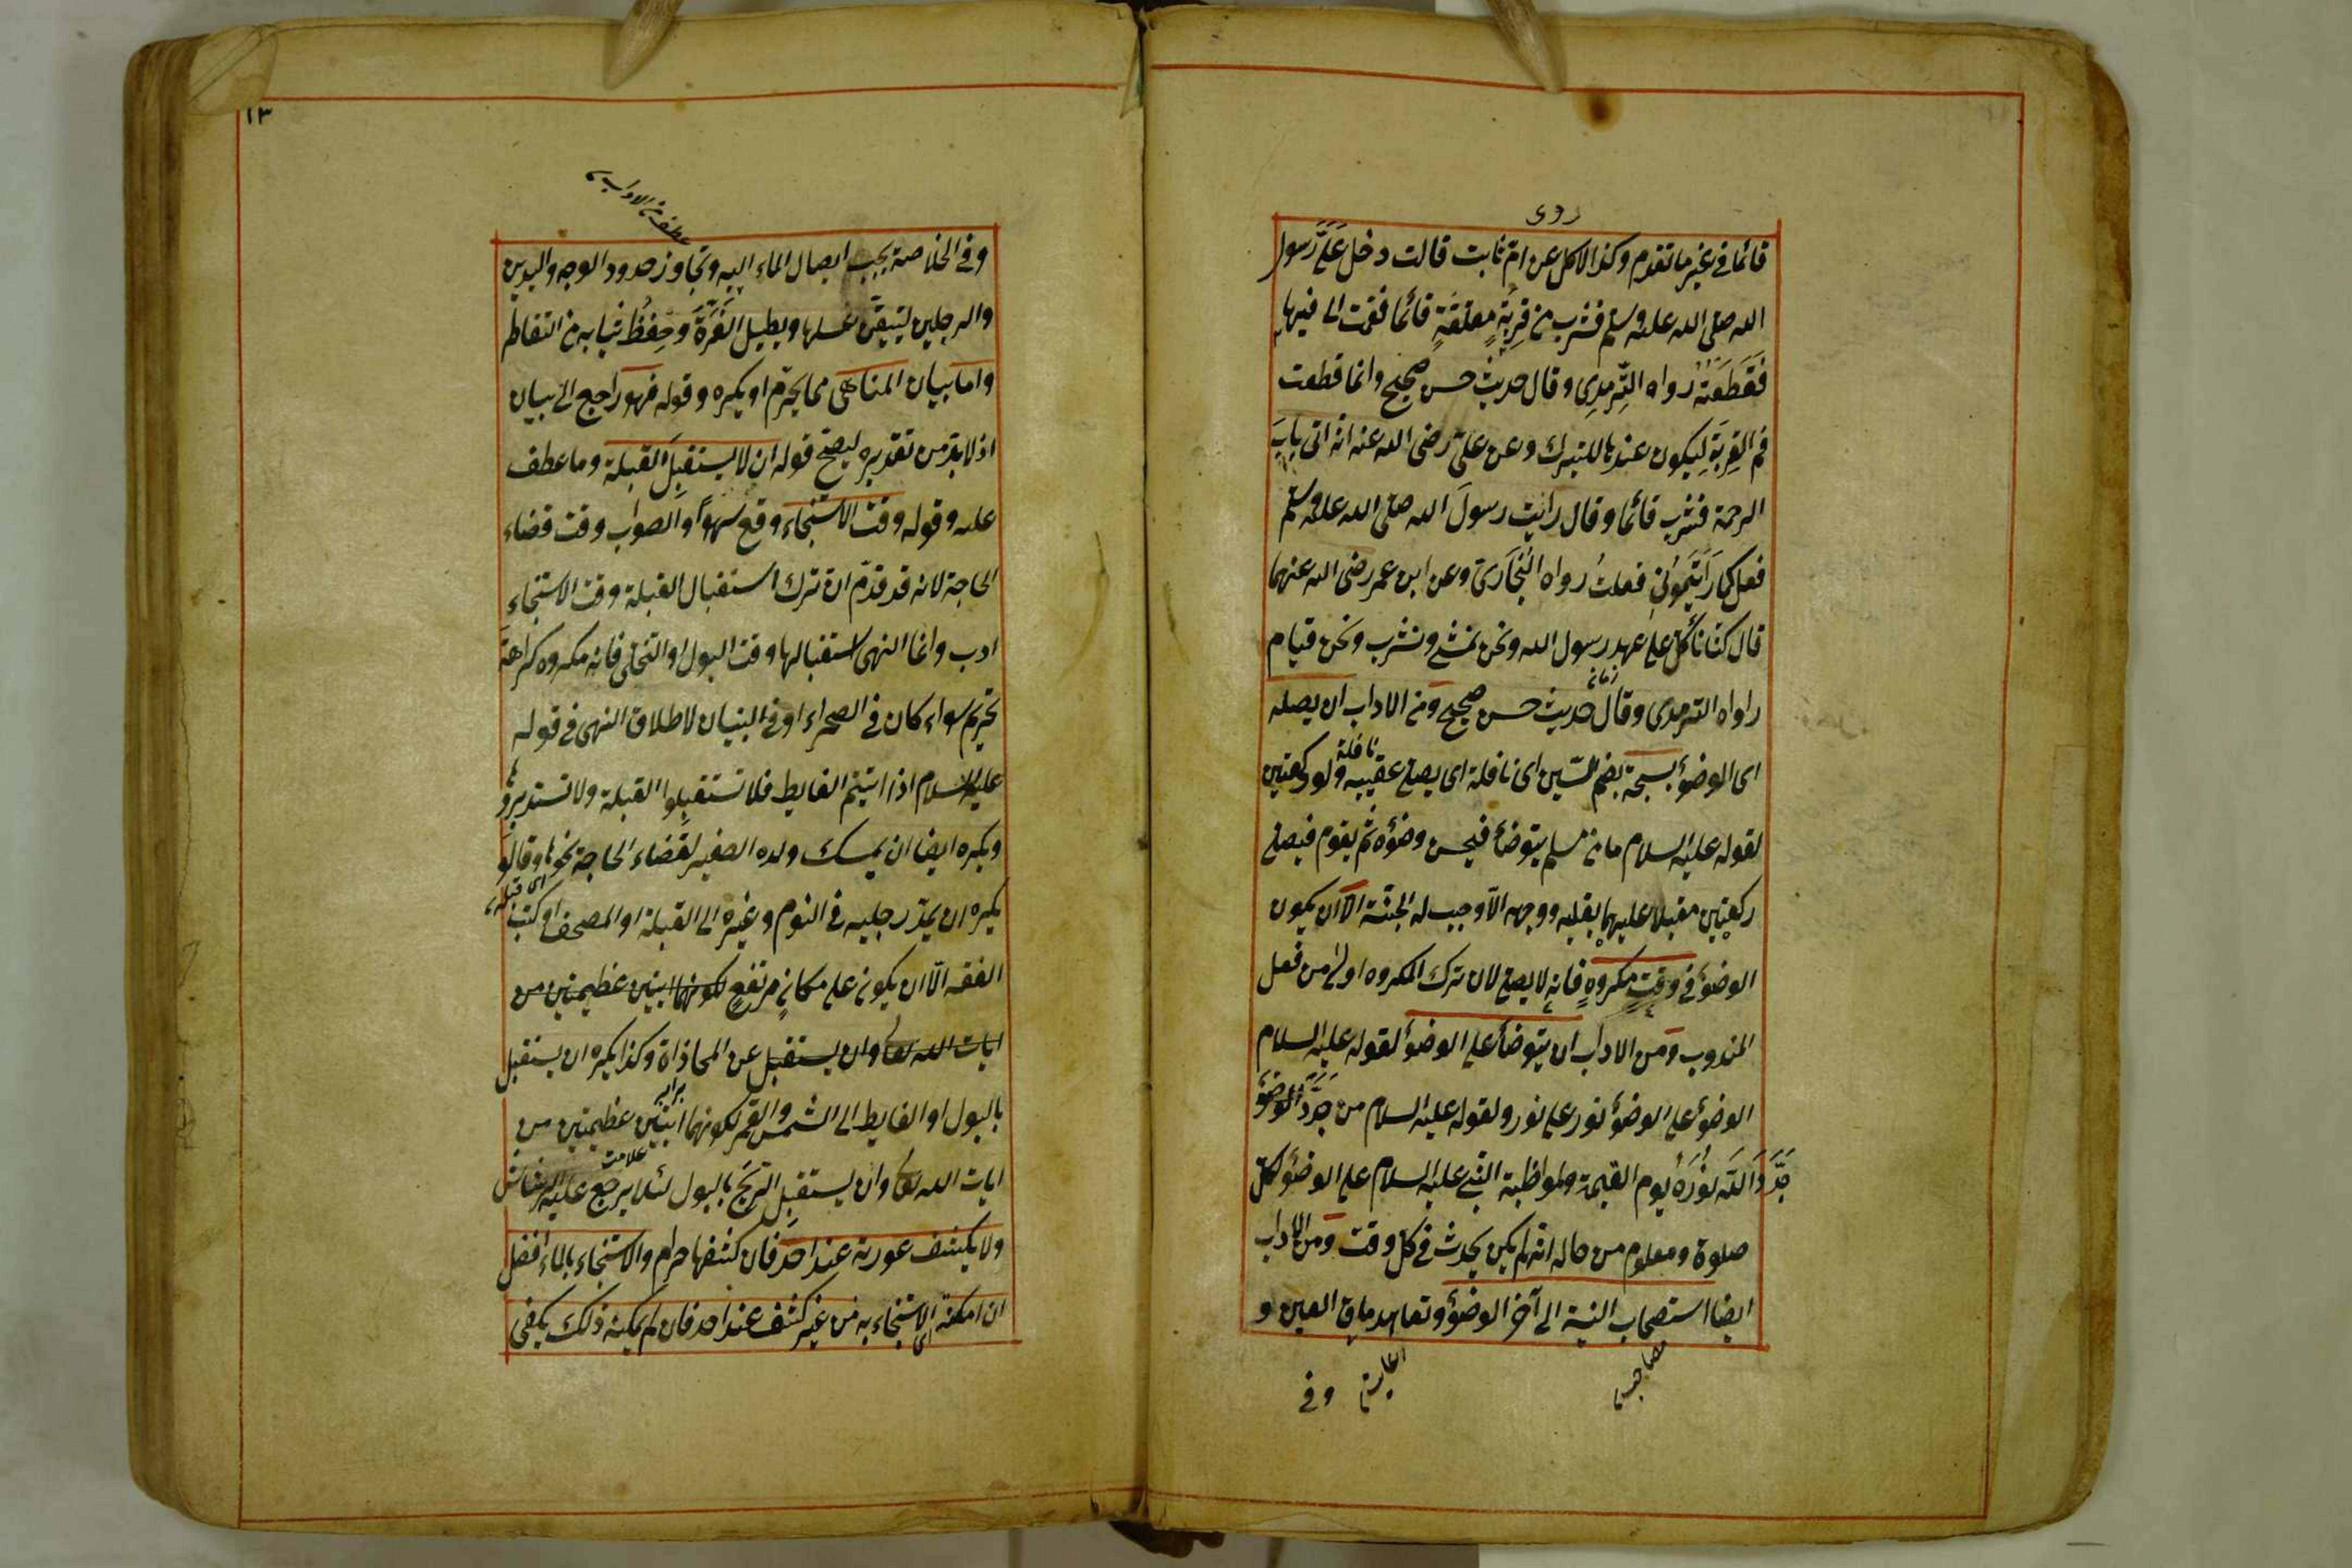 روى
قائما فى غير ما تقدم وكذا الاكل عن ام ثابت قالت دخل عَلَىَّ رسول
الله صلى الله عليه وسلم فشرب من قِربةٍ معلقةٍ قائما فقمت الى فيها
فَقَطَعَتْهُ رواه التِّرمِذِى وقال حديث حسن صحيح وانما قطعت
فم القِربَةِ لِيكون عندها للتبرك وعن على رضى الله عنه انه اتى بابَ
الرحمة فشرب قائما وقال رايت رسولَ الله صلى الله عليه وسلم
فعل كما رَاَيْتُمُونِى فعلتُ رواه البُخَارى وعن ابن عمر رضى الله عنهما
قال كنا نأكل على عهد رسول الله ونحن نمشى ونشرب ونحن قيام
زمان
راواه الترمدى وقال حديث حسن صحيح ومن الاداب ان يصله
اى الوضوء بسبحة بضم السّين اى نافلة اى يصلى عقيبه نافلة ولو ركعتين
لقوله عليه السلام ما من مسلم يتوضأ فيحسن وضوءه ثم يقوم فيصلى
ركعتين مقبلا عليهما بقلبه ووجهه الّا وجب له الجنّة الّا ان يكون
الوضوء فى وقتٍ مكروهٍ فانه لا يصلى لان ترك المكروه اولى من فعل
المندوب ومن الاداب ان يتوضأ على الوضوء لقوله عليه السلام
الوضوء على الوضوء نور على نور ولقوله عليه السلام من جَدَّدَ الوضوء
جَدَّدَ اللّه نُورَهُ يوم القيمة ولمواظبة النّبى عليه السلام على الوضوء لكل
صلوة ومعلوم من حاله انه لم يكن يحدث فى كل وقت ومن الاداب
ايضا استصحاب النية الى آخر الوضوء وتعاهد ماق العين و
مصاحب
وفى
١٣
عطف من الاداب
وفى الخلاصة يجب ايصال الماء اليه وتجاوز حدود الوجه واليدين
والرجلين ليتيقّن غسلها ويطيل الغُرَّةَ وحِفظُ ثيابه من التقاطر
واما بيان المناهى مما يحرم او يكره وقوله فهو راجع الى بيان
اذ لابد من تقديره ليصح قوله ان لا يستقبلَ القبلة وما عطف
عليه وقوله وقت الاستنجاء وقع سهواً والصواب وقت قضاء
الحاجة لانه قد قدّم ان ترك استقبال القبلة وقت الاستنجاء
ادب وانما النهى استقبالها وقت البول او التخلى فانه مكروه كراهة
تحريم سواء كان فى الصحراء او فى البنيان لاطلاق النهى فى قوله
عليه السلام اذا اتيتم الغايط فلا تستقبلوا القبلة ولا تستدبروها
ويكره ايضا ان يمسك ولده الصغير لقضاء الحاجة نحوها وقالو
اى قبله
يكره ان يمدّ رجليه فى النوم وغيره الى القبلة او المصحف او كتب
الفقه الّا ان يكون على مكانٍ مرتفعٍ لكونهما ايتين عظيمتين من
ايات الله تعالى وان يستقبل عن المحاذاة وكذا يكره ان يستقبل
برابر
بالبول او الغايط الى الشمس والقمر لكونهما ايتين عظيمتين من
علامت
ايات الله تعالى وان يستقبل الريح بالبول لئلا يرجع عليه الرشاش
ولا يكشف عورته عند احد فان كشفها حرام والاستنجاء بالماء افضل
ان امكنه الاستنجاء به من غير كشف عند احد فان لم يمكنه ذلك يكفى